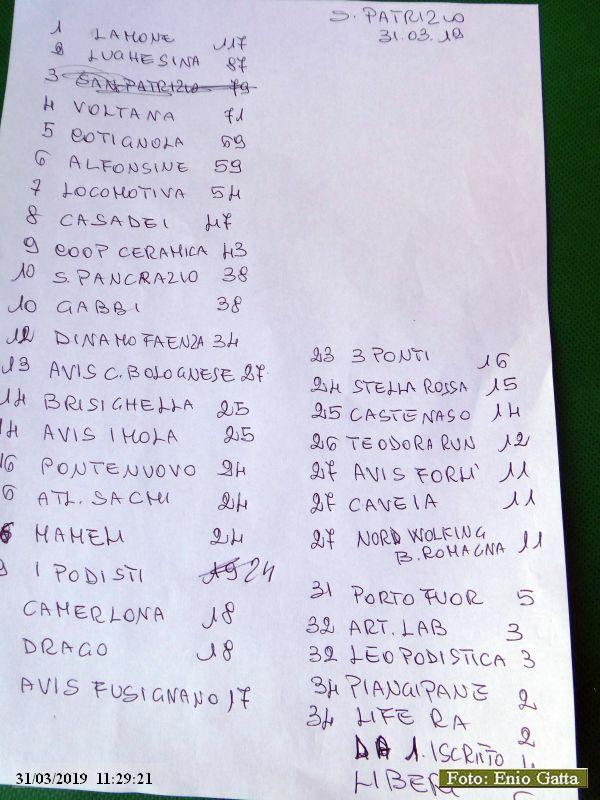 S. PATRIZIO
31.03.19
1 LAMONE 117
2 LUGHESINA 87
3 SAN PATRIZIO 79
4 VOLTANA 71
5 COTIGNOLA 69
6 ALFONSINE 59
7 LOCOMOTIVA 54
8 CASADEI 47
9 COOP CERAMICA 43
10 S. PANCRAZIO 38
10 GABBI 38
12 DINAMO FAENZA 34
13 AVIS C. BOLOGNESE 27
14 BRISIGHELLA 25
14 AVIS IMOLA 25
16 PONTENUOVO 24
6 ATL. SACMI 24
6 MAMELI 24
9 I PODISTI 19 24
CAMERLONA 18
DRAGO 18
AVIS FUSIGNANO 17
23 3 PONTI 16
24 STELLA ROSSA 15
25 CASTENASO 14
26 TEODORA RUN 12
27 AVIS FORLI' 11
27 CAVEIA 11
27 NORD WOLKING
B. ROMAGNA 11
31 PORTO FUOR 5
32 ART. LAB 3
32 LEOPODISTICA 3
34 PIANGIPANE 2
34 LIFE RA 2
DA 1. ISCRITTO
LIBERI
31/03/2019 11:29:21
Foto: Enio Gatta